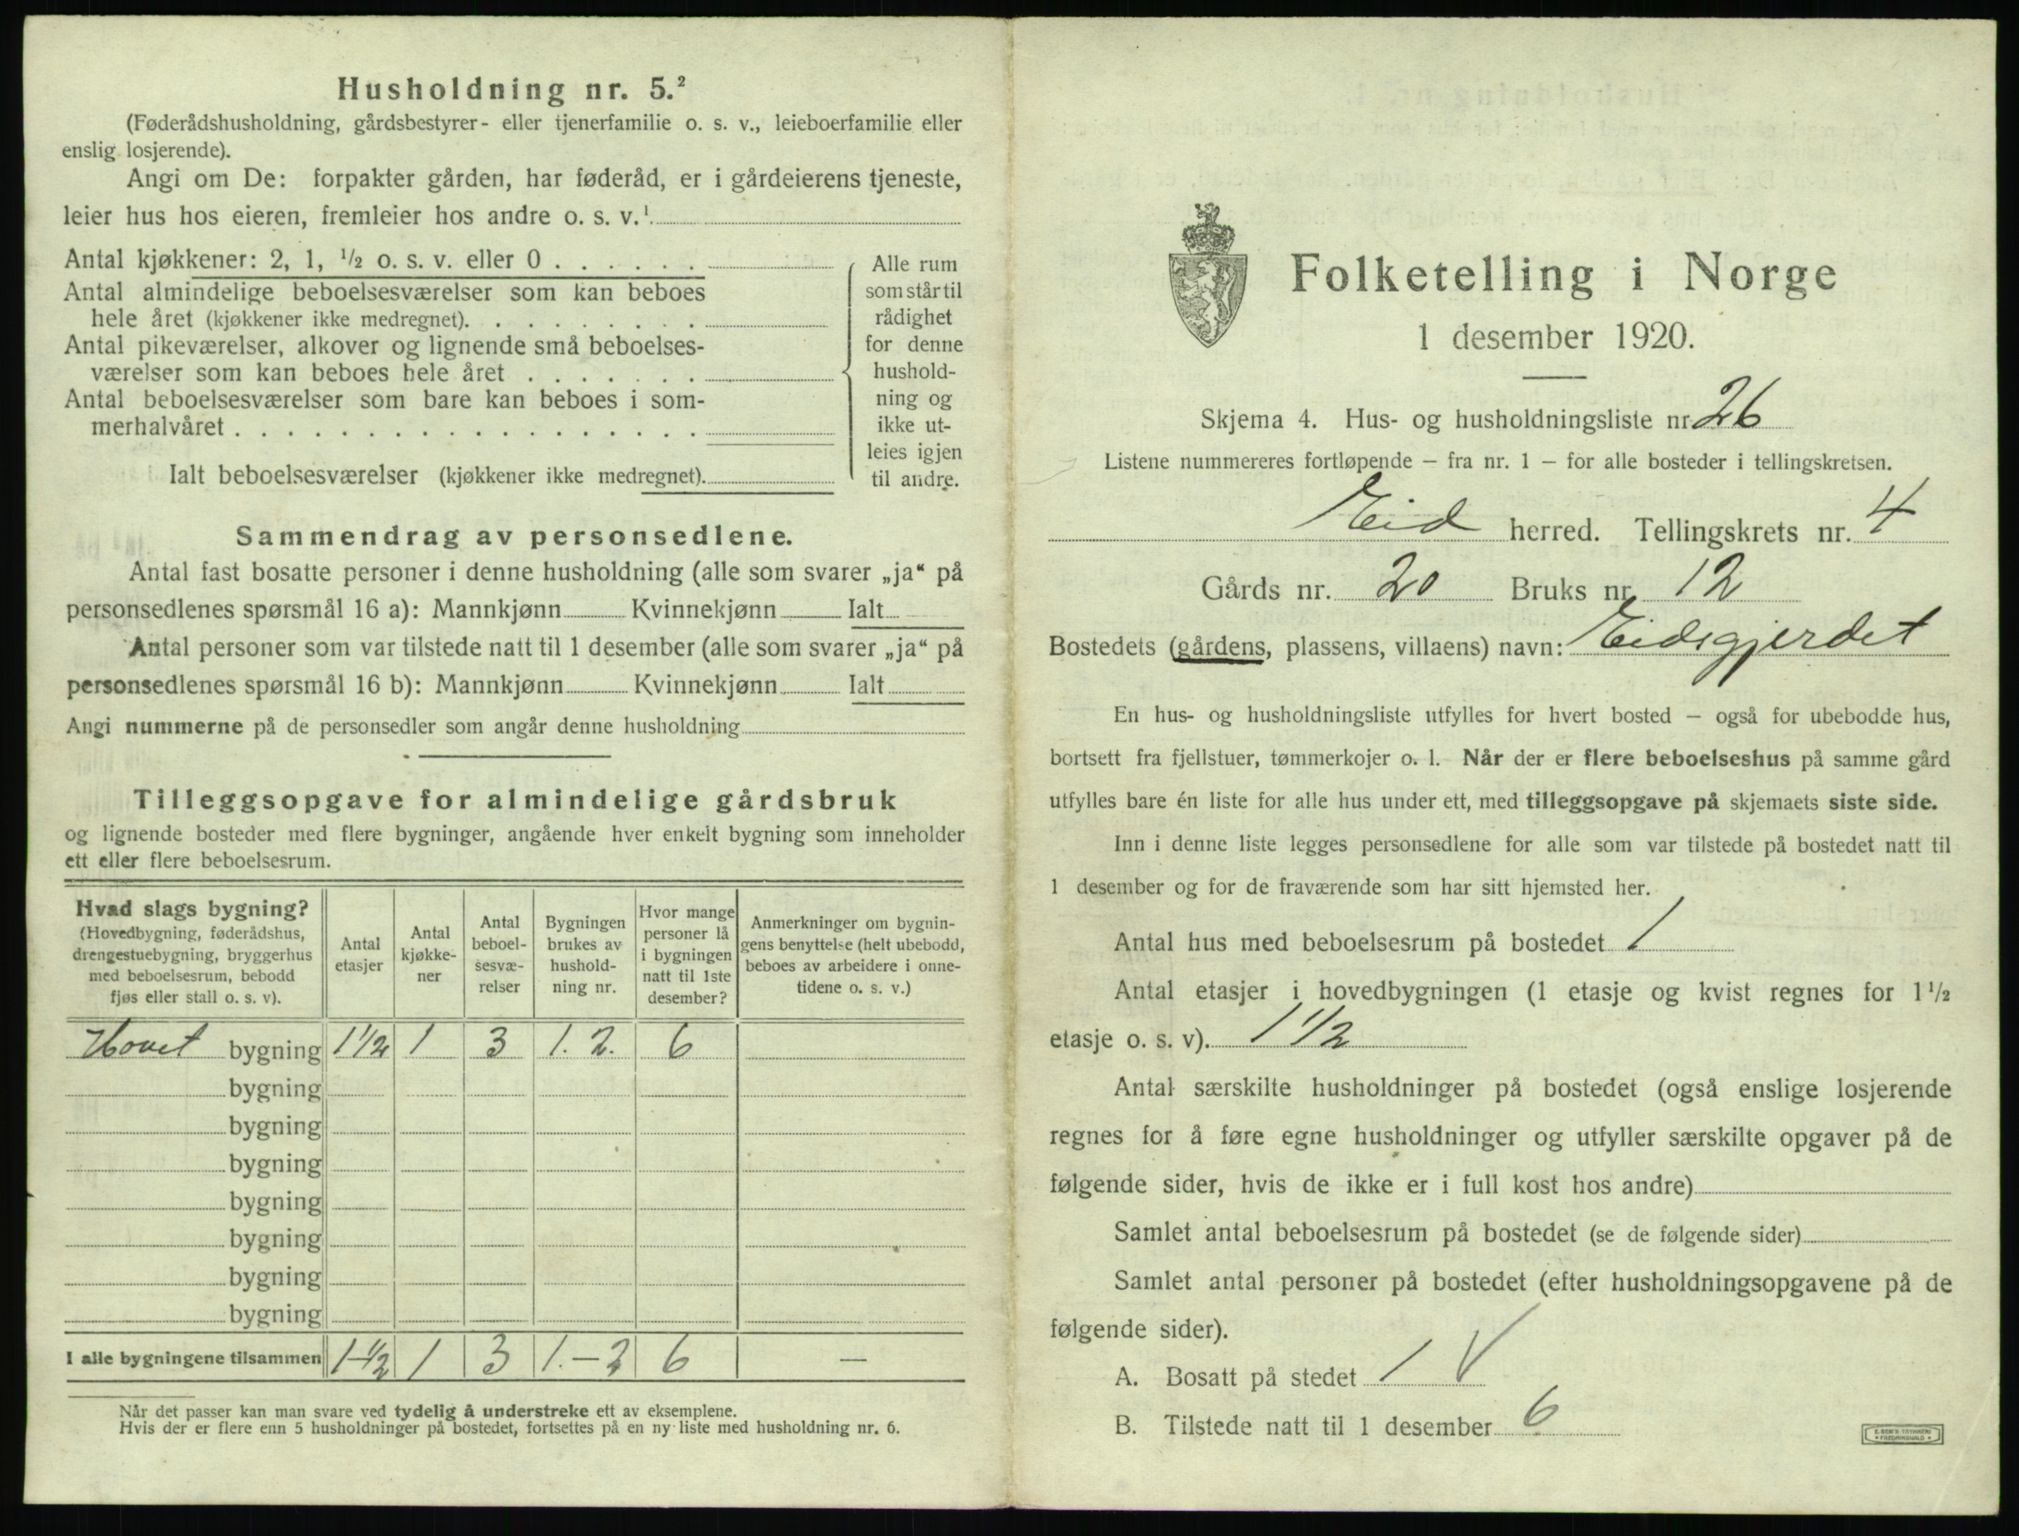 Husholdning nr. 5.²
(Føderådshusholdning, gårdsbestyrer- eller tjenerfamilie o. s. v., leieboerfamilie eller
enslig losjerende).
Angi om De: forpakter gården, har føderåd, er i gårdeierens tjeneste,
leier hus hos eieren, fremleier hos andre o. s. v.¹
Antal kjøkkener: 2, 1, ½ o. s. v. eller 0 . . . . . .
Antal almindelige beboelsesværelser som kan beboes
hele året (kjøkkener ikke medregnet). . . . . . . . .
Antal pikeværelser, alkover og lignende små beboelses-
værelser som kan beboes hele året . . . . . . .
Antal beboelsesværelser som bare kan beboes i som-
merhalvåret . . . . . . . . . . . . . . . . . .
Ialt beboelsesværelser (kjøkkener ikke medregnet).
Alle rum
som står til
rådighet
for denne
hushold-
ning og
ikke ut-
leies igjen
til andre.
Sammendrag av personsedlene.
Antal fast bosatte personer i denne husholdning (alle som svarer „ja“ på
personsedlenes spørsmål 16 a): Mannkjønn Kvinnekjønn Ialt
Antal personer som var tilstede natt til 1 desember (alle som svarer „ja“ på
personsedlenes spørsmål 16 b): Mannkjønn Kvinnekjønn Ialt
Angi nummerne på de personsedler som angår denne husholdning
Tilleggsopgave for almindelige gårdsbruk
og lignende bosteder med flere bygninger, angående hver enkelt bygning som inneholder
ett eller flere beboelsesrum.
Hvad slags bygning?
(Hovedbygning, føderådshus,
drengestuebygning, bryggerhus
med beboelsesrum, bebodd
fjøs eller stall o. s. v).
Antal
etasjer
Antal
kjøkke-
ner
Antal
beboel-
sesvæ-
relser
Bygningen
brukes av
hushold-
ning nr.
Hvor mange
personer lå
i bygningen
natt til 1ste
desember?
Anmerkninger om bygnin-
gens benyttelse (helt ubebodd,
beboes av arbeidere i onne-
tidene o. s. v.)
Hovet bygning 1½ 1 3 1. 2. 6
bygning
bygning
bygning
bygning
bygning
bygning
bygning
I alle bygningene tilsammen 1-½ 1 3 1.-2 6 —
Når det passer kan man svare ved tydelig å understreke ett av eksemplene.
Hvis der er flere enn 5 husholdninger på bostedet, fortsettes på en ny liste med husholdning nr. 6.
Folketelling i Norge
1 desember 1920.
Skjema 4. Hus- og husholdningsliste nr. 26
Listene nummereres fortløpende – fra nr. 1 – for alle bosteder i tellingskretsen.
Eid herred. Tellingskrets nr. 4
Gårds nr. 20 Bruks nr. 12
Bostedets (gårdens, plassens, villaens) navn: Eidsgjerdet
En hus- og husholdningsliste utfylles for hvert bosted – også for ubebodde hus,
bortsett fra fjellstuer, tømmerkojer o. l. Når der er flere beboelseshus på samme gård
utfylles bare én liste for alle hus under ett, med tilleggsopgave på skjemaets siste side.
Inn i denne liste legges personsedlene for alle som var tilstede på bostedet natt til
1 desember og for de fraværende som har sitt hjemsted her.
Antal hus med beboelsesrum på bostedet 1
Antal etasjer i hovedbygningen (1 etasje og kvist regnes for 1½
etasje o. s. v). 1½
Antal særskilte husholdninger på bostedet (også enslige losjerende
regnes for å føre egne husholdninger og utfyller særskilte opgaver på de
følgende sider, hvis de ikke er i full kost hos andre)
Samlet antal beboelsesrum på bostedet (se de følgende sider)
Samlet antal personer på bostedet (efter husholdningsopgavene på de
følgende sider).
A. Bosatt på stedet 1 V
B. Tilstede natt til 1 desember 6